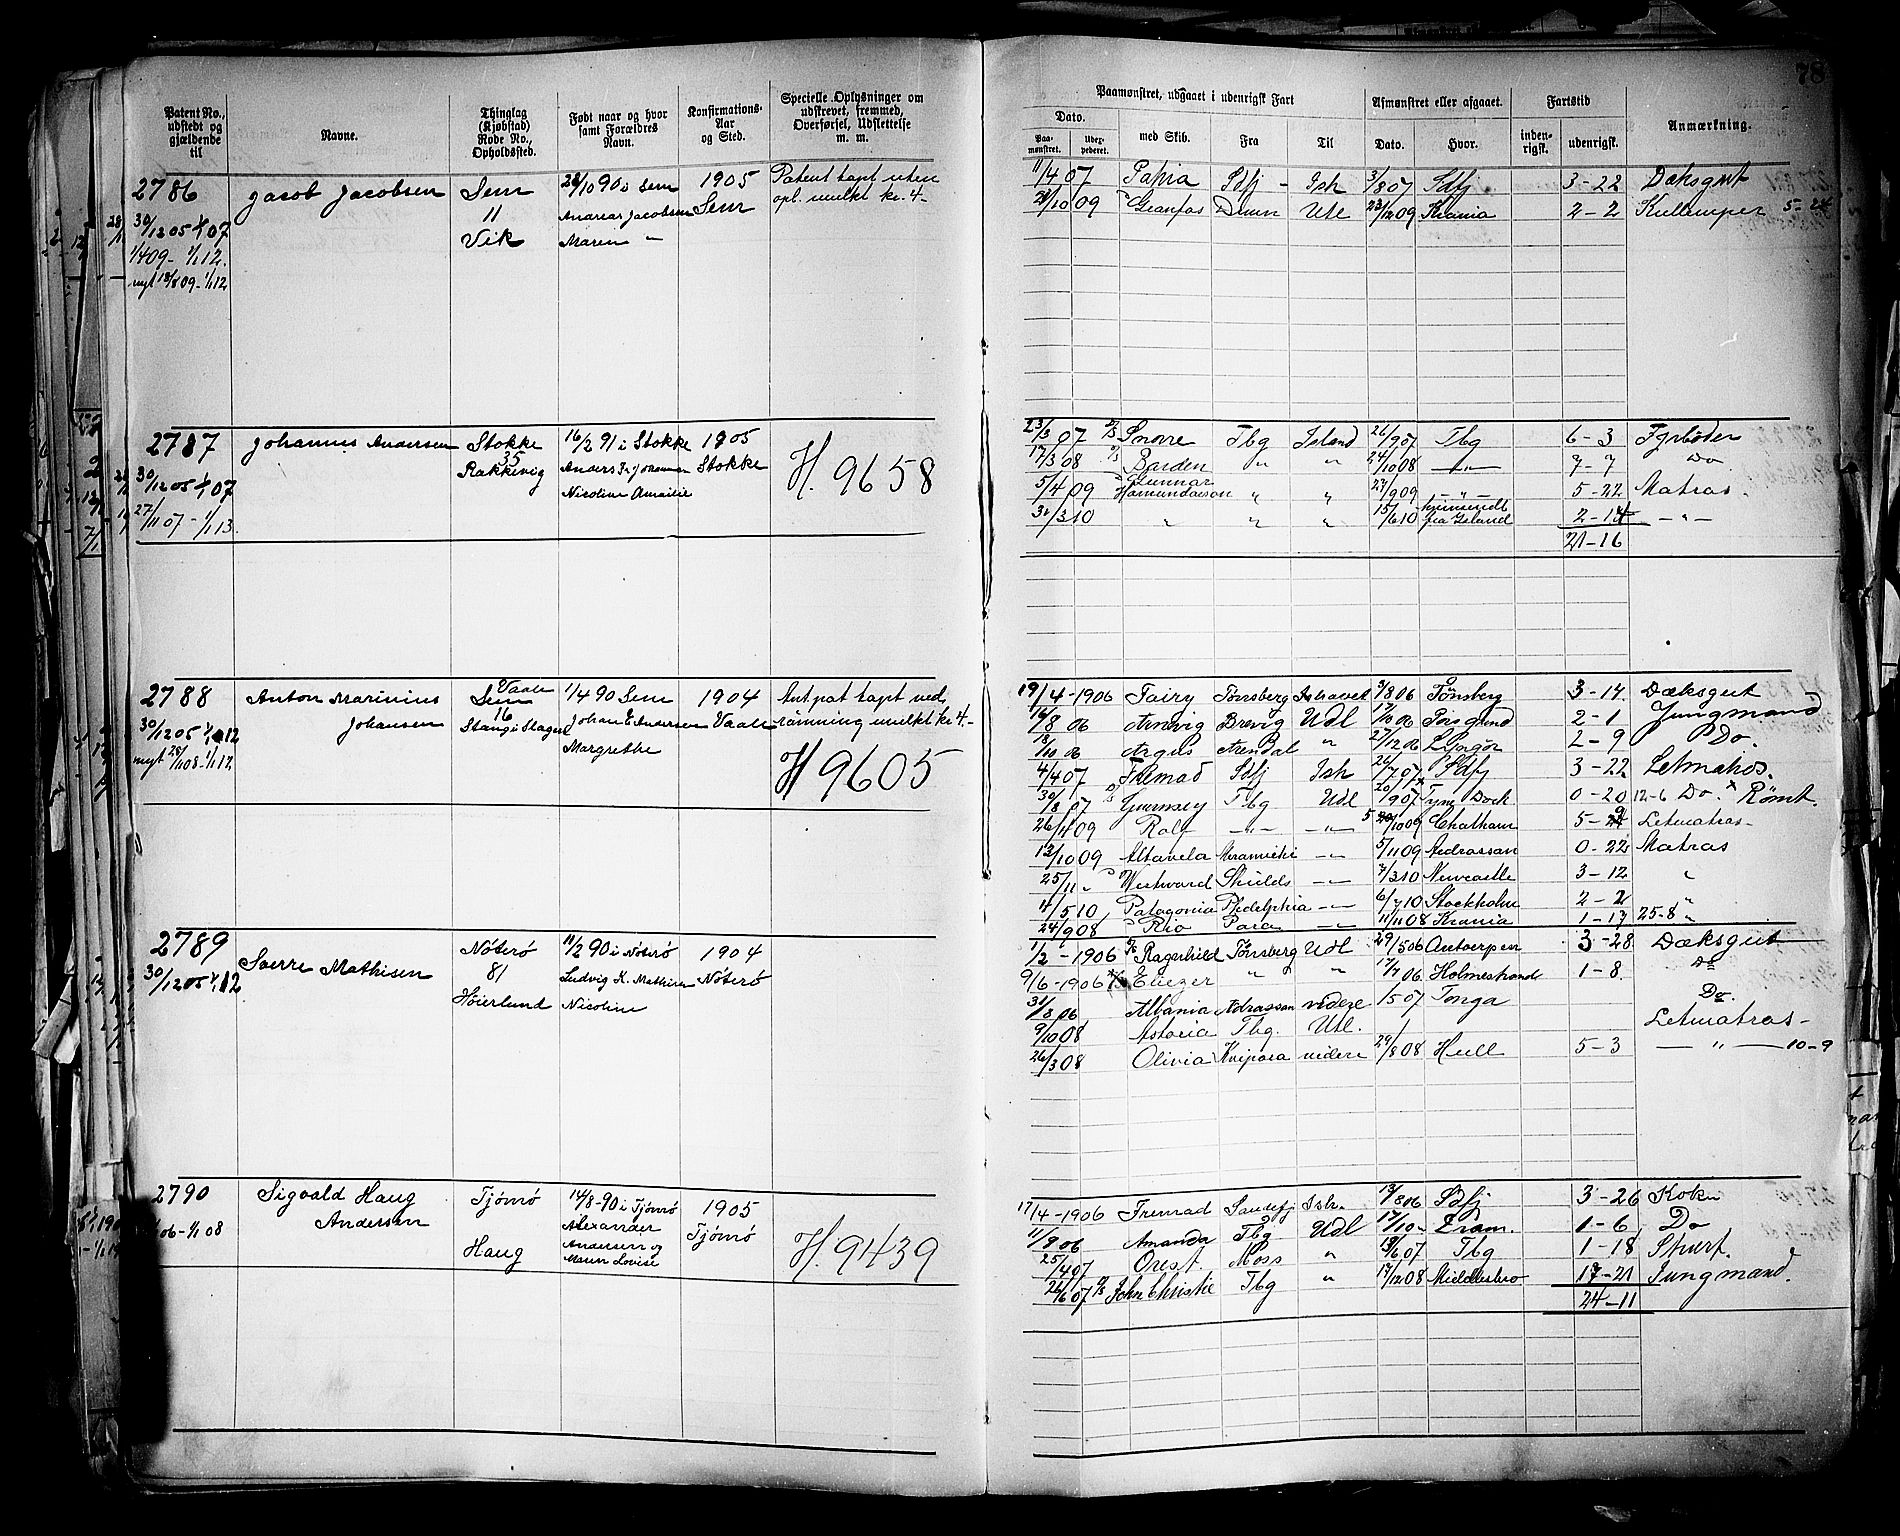 78
Patent No., udstedt og gjældende til
Navne.
Thinglag (Kjøbstad) Rode No., Opholdssted.
Født naar og hvor samt Forældres Navn.
Konfirmations-Aar og Sted.
Specielle Oplysninger om udskrevet, fremmed, Overførsel, Udslettelse m. m.
Paamønstret, udgaaet i udenrigsk Fart
Dato.
Paamønstret.
med Skib.
Fra
Til
Afmønstret eller afgaaet.
Dato.
Hvor.
Fartstid
indenrigsk.
udenrigsk.
Anmærkning.
2786 Jacob Jacobsen Sem 28/10 90 i Sem 1905 Patent tapt uten
30/12 05 1/1 07 11 Andreas Jacobsen Sem opl. mulkt kr. 4.-
1/4 09 - 1/1 12. Vik Maren "
nyt 18/8 09 - 1/1 12
11/4 07 Sdfj - Ish 3/8 07 Sdfj 3-22 Dæksgut
21/10 09 Dram Utl 23/12 09 Krania 2-2 5-24
2787 Johannes Andersen Stokke 16/2 91 i Stokke 1905
30/12 05 1/1 07 35 Stokke
27/11 07 - 1/1 13. Rakkevig Nicoline Amalie
H. 9658
23/3 07 D/S Snorre Tbg Island 26/9 07 Tbg 6-3 Fyrbøder
17/3 08 D/S Barden " " 24/10 08 -"- 7-7 Do
5/4 09 Gunnar " " 27/9 09 -"- 5-22 Matros.
31/3 10 " " " 15/6 10 fra Island 2-14 -"-
21-16
2788 Anton Marinius Vaale 1/4 90 Sem 1904 Ant. pat tapt ved
Johansen Sem 16 Johan Edvardsen Vaale rømning mulkt kr 4.-
30/12 05 1/1 12 Margrethe
nyt 28/11 08 - 1/1 12.
H 9605
19/4 - 1906 Fairy Tønsberg Ishavet 3/8 06 Tønsberg 3-14. Dæksgut
16/8 06 Arnevig Brevig Udl 17/10 06 Porsgrund 2-1 Jungmand
18/10 06 Argus Arendal " 27/12 06 2-9 Do.
4/4 07 Fremad Sdfj Ish 26/7 07 Sdfj 3-22 Letmatros.
30/8 07 D/S Guernsey Tbg Udl 20/9 07 Tyne Dock 0-20 12-6 Do. × Rømt.
26/4 09 Rolf -"- -"- Chatham Letmatros-
13/10 09 Altavela -"- 5/11 09 Ardrossan 0-22 Matros
25/11 " Westward Shields -"- 7/3 10 Newcastle 3-12 "
4/5 10 Patagonia -"- 6/7 10 Stockholm 2-2 "
24/9 08 Rio Para -"- 11/11 08 Krania 1-17 25-8 "
2789 Sverre Mathisen Nøterø 11/2 90 i Nøterø 1904
30/12 05 1/1 12 81 Ludvig K. Mathisen Nøterø
Høierlund Nicoline
1/2 - 1906 Ragnhild Tønsberg Udl 29/5 06 Antwerpen 3-28 Dæksgut
9/6 - 1906 Eliezer " " 17/7 06 Holmestrand 1-8. Do
31/8 06 Albania Ardrossan videre 1/5 07 Tonga Do.
9/10 08 Astoria Tbg. Utl. Letmatros-
26/3 08 Olivia videre 29/8 08 Hull 5-3 -"- 10-9
2790 Sigvald Haug Tjømø 14/8-90 i Tjømø 1905
Andersen Alexander Tjømø
06 - 1/1 08 Haug Andersen og
Maren Lovise
H. 9439
17/4 - 1906 Fremad Sandefj Ish. 13/8 06 Sdfj 3-26 Kok
11/9 06 Amanda Tbg Udl 17/10 - Dram. 1-6 Do
25/4 07 Orest Moss " 13/6 07 Tbg 1-18 Stuert.
26/6 07 D/S John Christie Tbg " 17/12 08 Middlesbro 17-21 Jungmand.
24-11